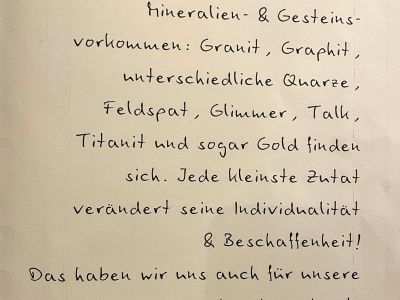 Mineralien- & Gesteins-
vorkommen: Granit, Graphit,
unterschiedliche Quarze,
Feldspat, Glimmer, Talk,
Titanit und sogar Gold finden
sich. Jede kleinste Zutat
verändert seine Individualität
& Beschaffenheit!
Das haben wir uns auch für unsere